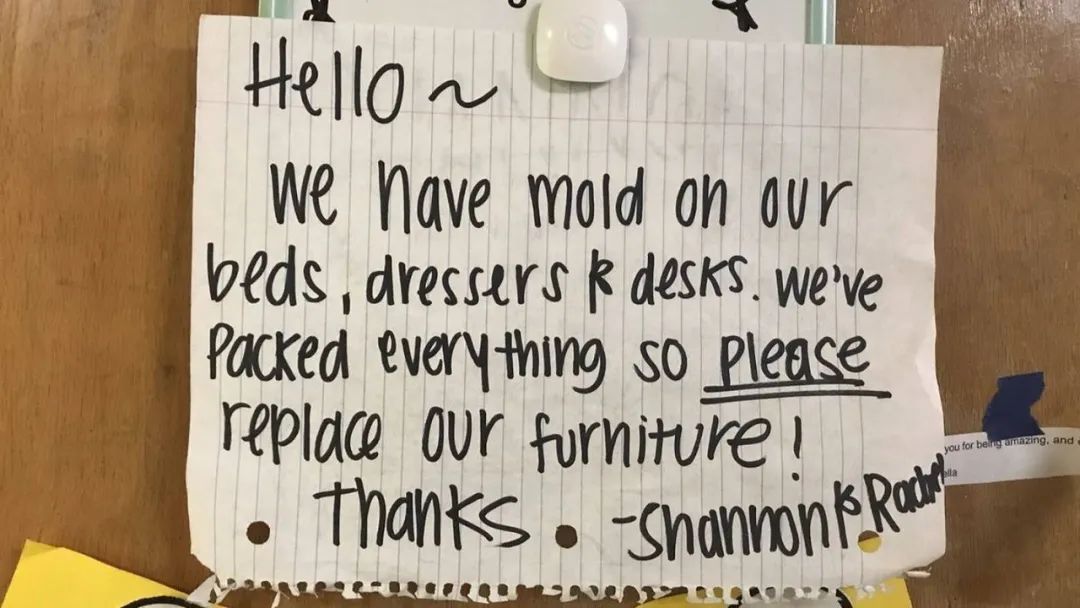 Hello ~
We have mold on our
beds, dressers & desks. We've
packed everything so please
replace our furniture!
Thanks -Shannon & Rachel
you for being amazing, and
ella